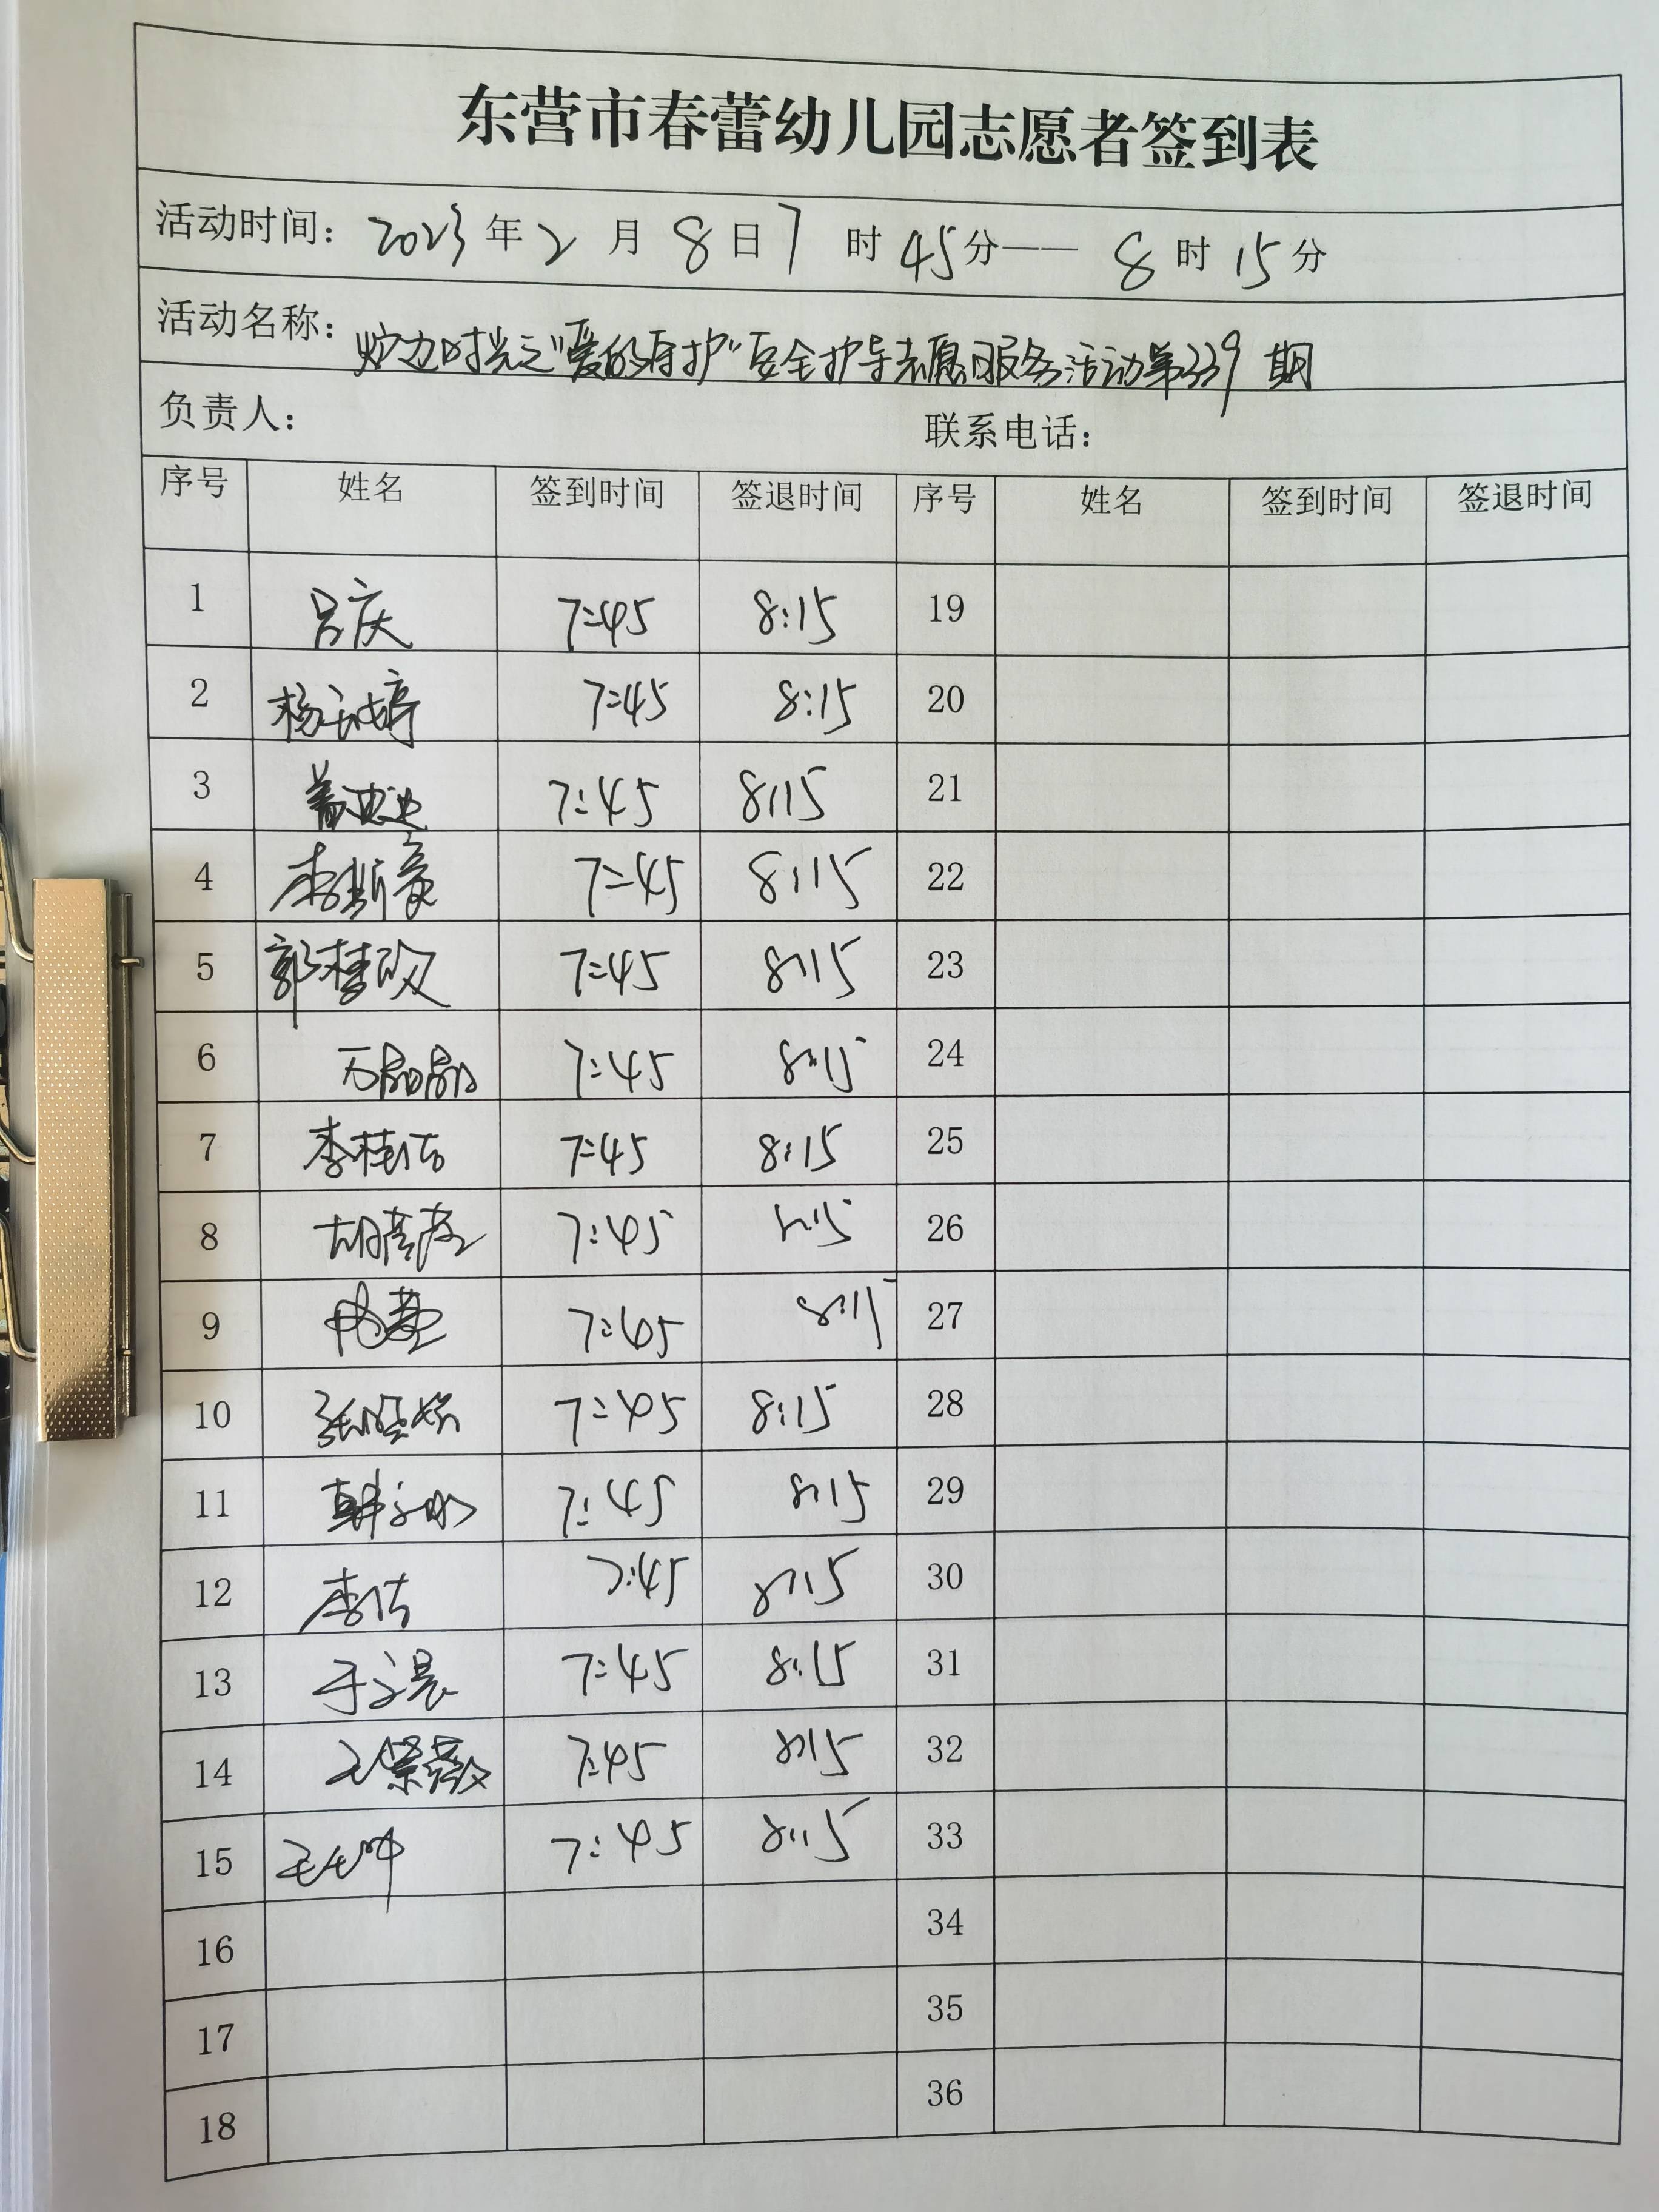 东营市春蕾幼儿园志愿者签到表
活动时间：2023年2月8日7时45分——8时15分
活动名称：炉边时光之"爱的守护"安全护导志愿服务活动第339期
负责人： 联系电话：
序号 姓名 签到时间 签退时间 序号 姓名 签到时间 签退时间
1 吕庆 7:45 8:15 19
2 7:45 8:15 20
3 7:45 8:15 21
4 7:45 8:15 22
5 7:45 8:15 23
6 万晶晶 7:45 8:15 24
7 李桂洁 7:45 8:15 25
8 7:45 8:15 26
9 7:45 8:15 27
10 7:45 8:15 28
11 7:45 8:15 29
12 李洁 7:45 8:15 30
13 7:45 8:15 31
14 王紫薇 7:45 8:15 32
15 7:45 8:15 33
16 34
17 35
18 36